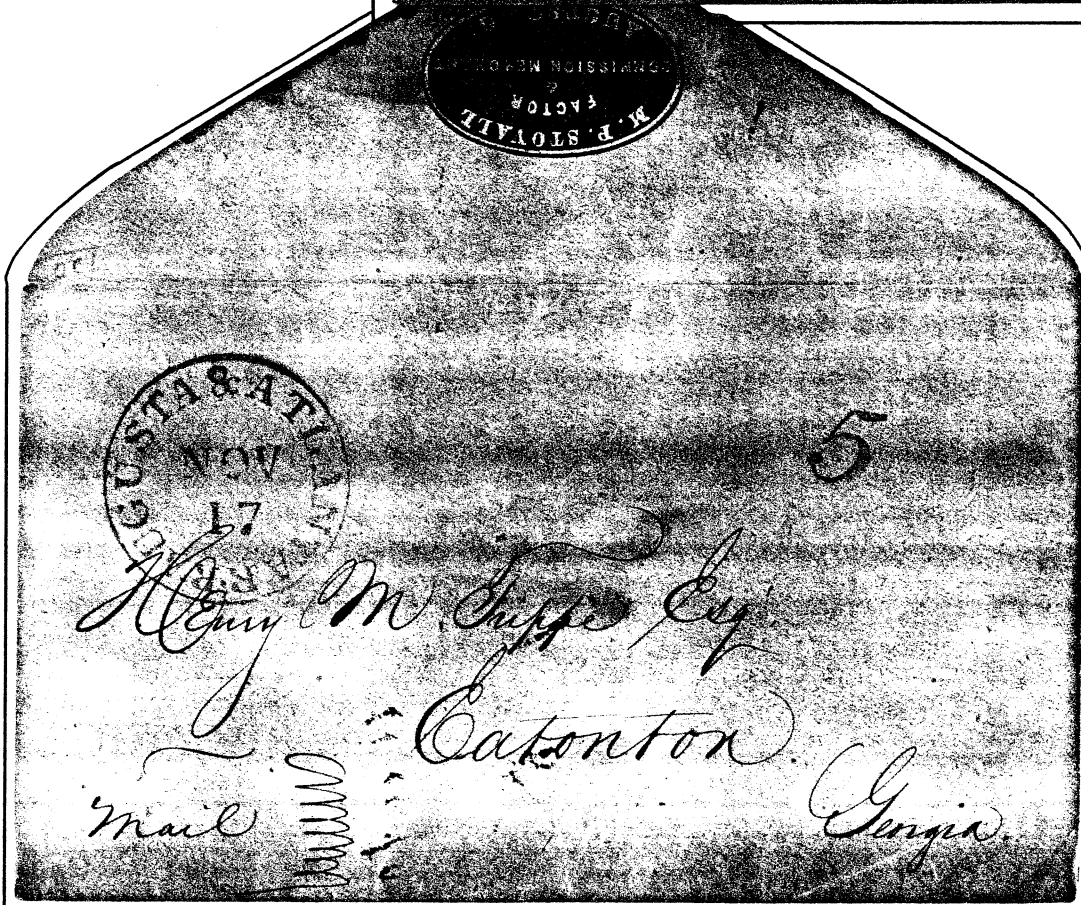 M. P. STOVALL
FACTOR
&
COMMISSION MERCHANT
AUGUSTA & ATLANTA R.R.
NOV
17
5
Henry M Trippe Esq
Eatonton.
Mail
Georgia.